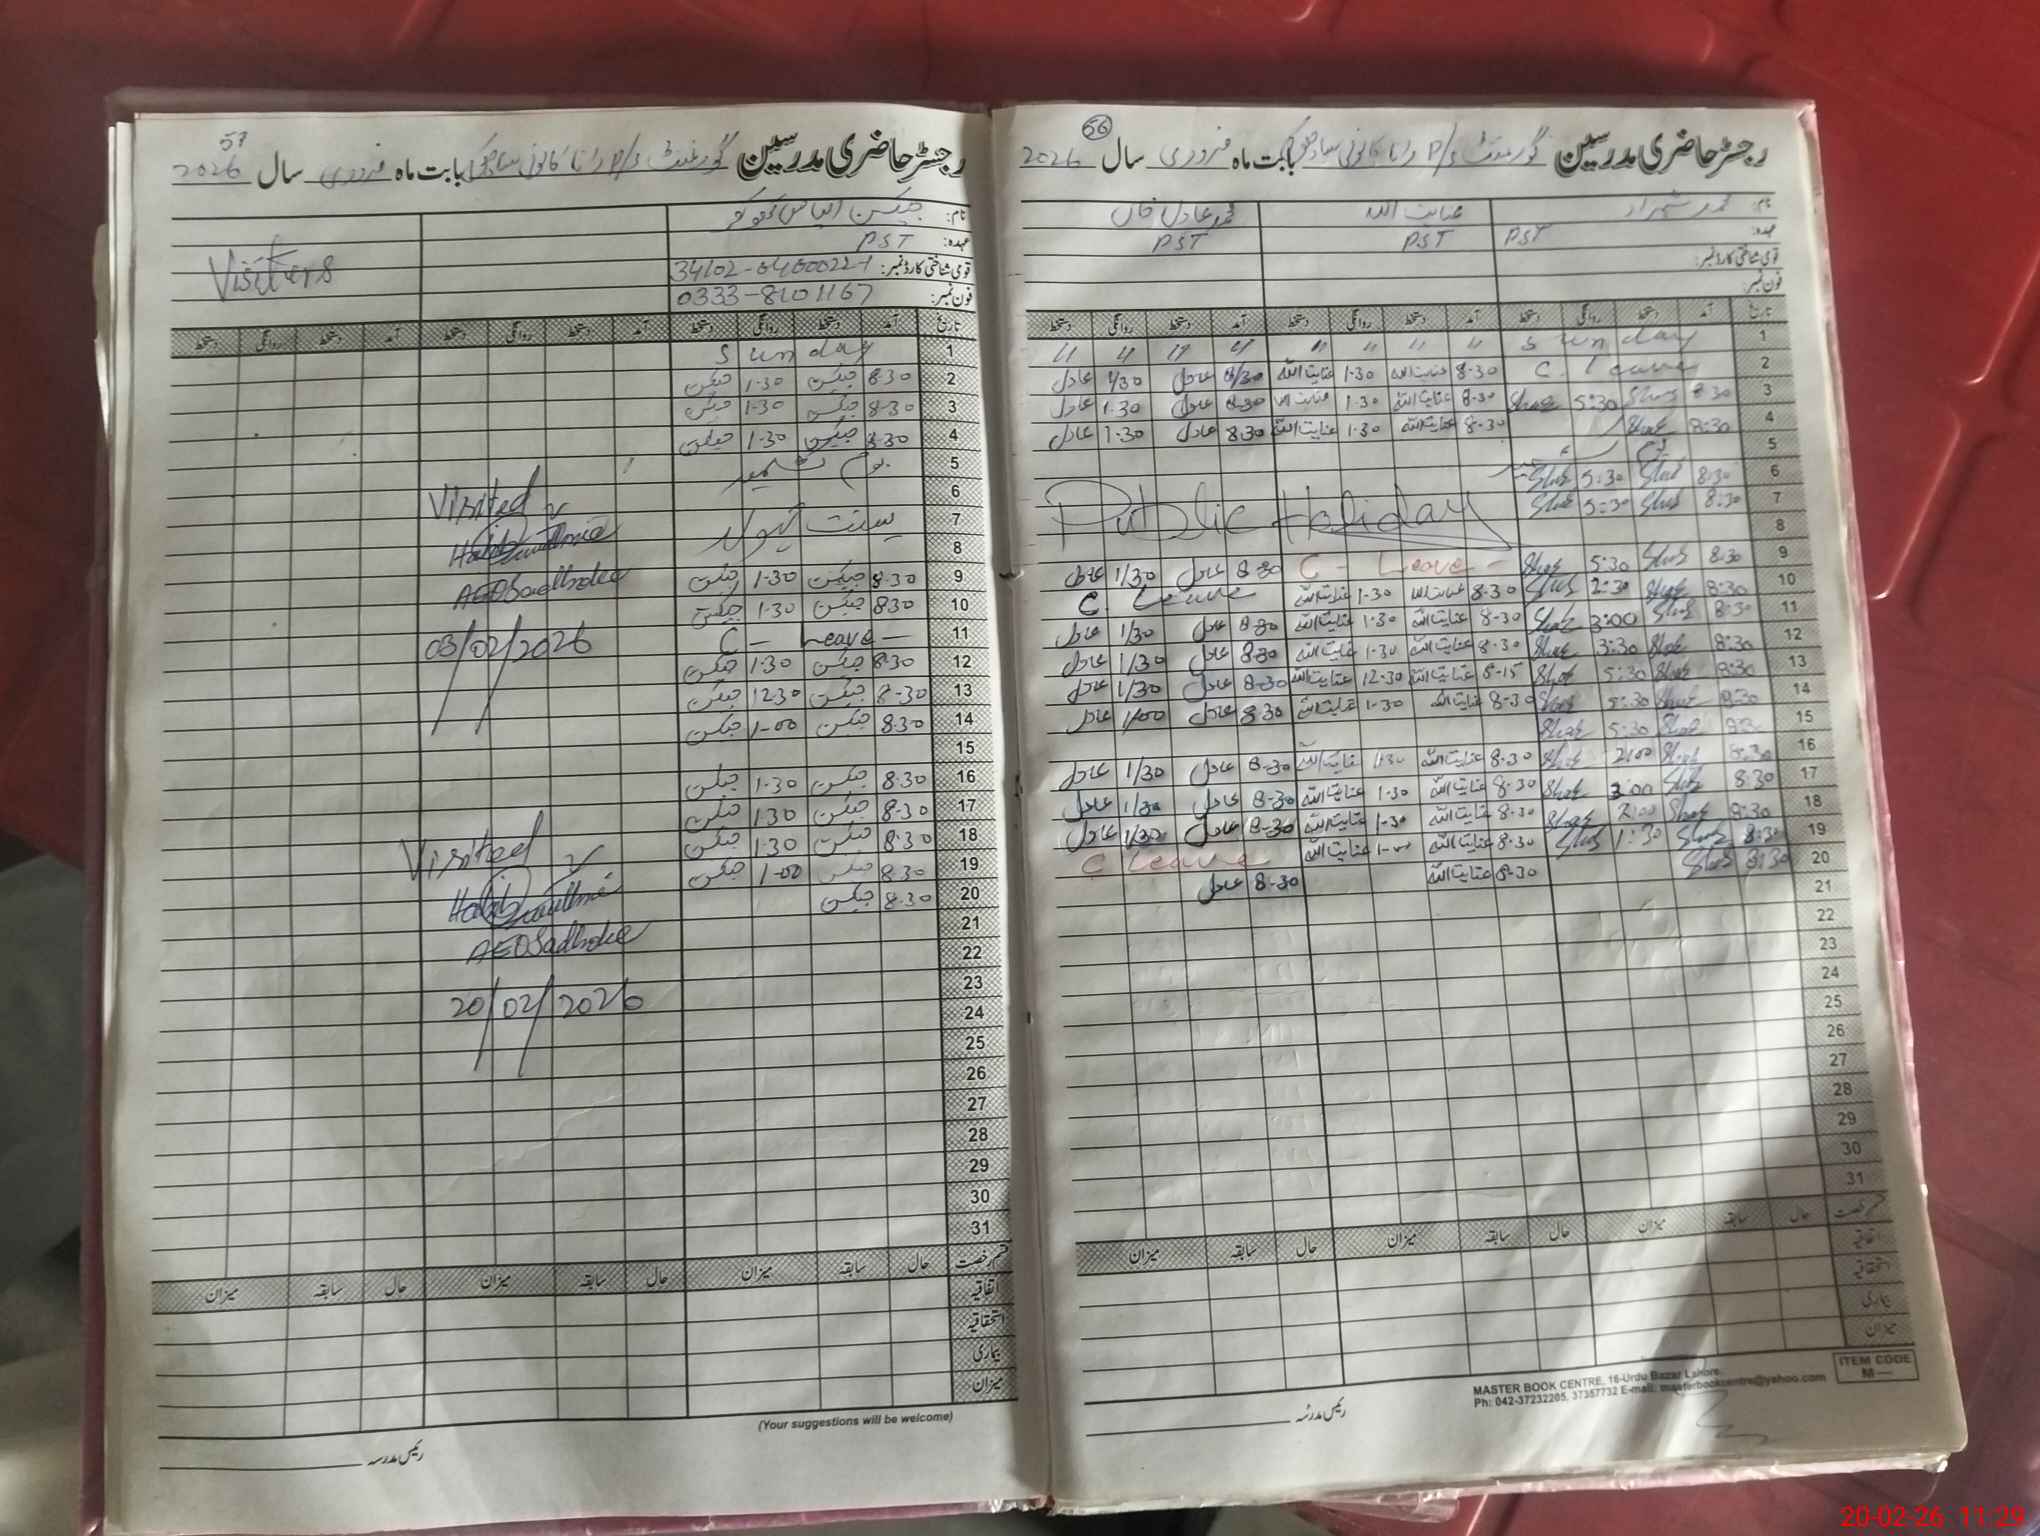 57
رجسٹر حاضری مدرسین گورنمنٹ P/S رانا کالونی سادھوکی بابت ماہ فروری سال 2026
نام: جیکسن الیاس کھوکھر
عہدہ: PST
قومی شناختی کارڈ نمبر:
فون نمبر: 0333-8101167
Visiters
تاریخ آمد دستخط روانگی دستخط آمد دستخط روانگی دستخط آمد دستخط روانگی دستخط
1 Sunday
2 8-30 جیکسن 1-30 جیکسن
3 8-30 جیکسن 1-30 جیکسن
4 8-30 جیکسن 1-30 جیکسن
5 یوم کشمیر
6
7
8
9 8-30 جیکسن 1-30 جیکسن
10 8-30 جیکسن 1-30 جیکسن
11 C - Leave -
12 8-30 جیکسن 1-30 جیکسن
13 8-30 جیکسن 12-30 جیکسن
14 8-30 جیکسن 1-00 جیکسن
15
16 8-30 جیکسن 1-30 جیکسن
17 8-30 جیکسن 1-30 جیکسن
18 8-30 جیکسن 1-30 جیکسن
19 8-30 جیکسن 1-00 جیکسن
20 8-30 جیکسن
21
22
23
24
25
26
27
28
29
30
31
Visited
AEO Sadhoke
03/02/2026
Visited
AEO Sadhoke
20/02/2026
قسم رخصت حال سابقہ میزان حال سابقہ میزان حال سابقہ میزان
اتفاقیہ
استحقاقیہ
بیماری
میزان
(Your suggestions will be welcome)
رئیس مدرسہ
56
رجسٹر حاضری مدرسین گورنمنٹ P/S رانا کالونی سادھوکی بابت ماہ فروری سال 2026
نام: محمد شہزاد عنایت اللہ محمد عادل خان
عہدہ: PST PST PST
قومی شناختی کارڈ نمبر:
فون نمبر:
تاریخ آمد دستخط روانگی دستخط آمد دستخط روانگی دستخط آمد دستخط روانگی دستخط
1 Sunday " " " " " " " "
2 C. Leave 8-30 عنایت اللہ 1-30 عنایت اللہ 8/30 عادل 1/30 عادل
3 8:30 5:30 8-30 عنایت اللہ 1-30 عنایت اللہ 8-30 عادل 1-30 عادل
4 8:30 8-30 عنایت اللہ 1-30 عنایت اللہ 8-30 عادل 1:30 عادل
5 یوم کشمیر
6 8:30 5:30
7 8:30 5:30
Public Holiday
8
9 8:30 5:30 C - Leave - 8-30 عادل 1/30 عادل
10 8:30 2:30 8-30 عنایت اللہ 1-30 عنایت اللہ C. Leave
11 8:30 3:00 8-30 عنایت اللہ 1-30 عنایت اللہ 8-30 عادل 1/30 عادل
12 8:30 3:30 8-30 عنایت اللہ 1-30 عنایت اللہ 8-30 عادل 1/30 عادل
13 8:30 5:30 8-15 عنایت اللہ 12-30 عنایت اللہ 8-30 عادل 1/30 عادل
14 8:30 5:30 8-30 عنایت اللہ 1-30 عنایت اللہ 8-30 عادل 1/00 عادل
15 5:30
16 8:30 2:00 8-30 عنایت اللہ 1-30 عنایت اللہ 8-30 عادل 1/30 عادل
17 8:30 3:00 8-30 عنایت اللہ 1-30 عنایت اللہ 8-30 عادل 1/30 عادل
18 8:30 2:00 8-30 عنایت اللہ 1-30 عنایت اللہ 8-30 عادل 1/30 عادل
19 8:30 1:30 8-30 عنایت اللہ 1-00 عنایت اللہ C Leave
20 8:30 8-30 عنایت اللہ 8-30 عادل
21
22
23
24
25
26
27
28
29
30
31
قسم رخصت حال سابقہ میزان حال سابقہ میزان حال سابقہ میزان
اتفاقیہ
استحقاقیہ
بیماری
میزان
ITEM CODE
M—
MASTER BOOK CENTRE, 16-Urdu Bazar Lahore.
Ph: 042-37232205, 37357732 E-mail: masterbookcentre@yahoo.com
رئیس مدرسہ
20-02-26 11:29